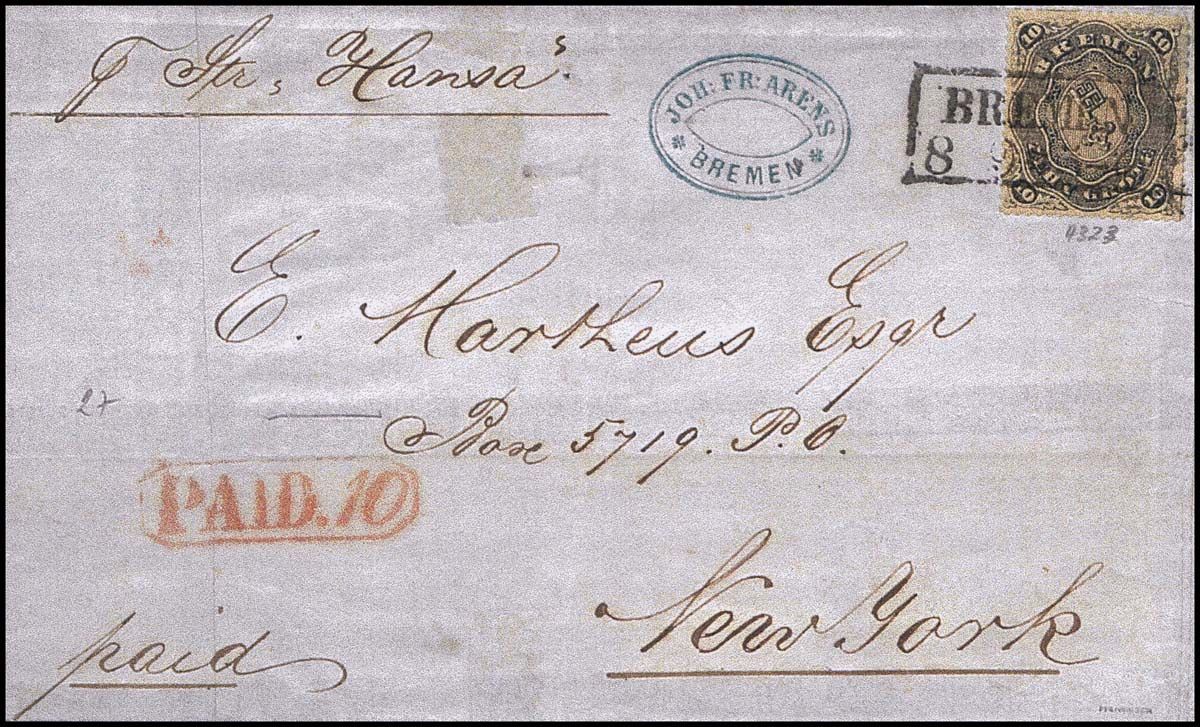 Str. "Hansa".
JOH: FR: ARENS
BREMEN
10 10
BREMEN
10 10
BRE
8
4323
E. Martheus Esqr
27
Box 5719. P.O.
PAID.10
New York
paid